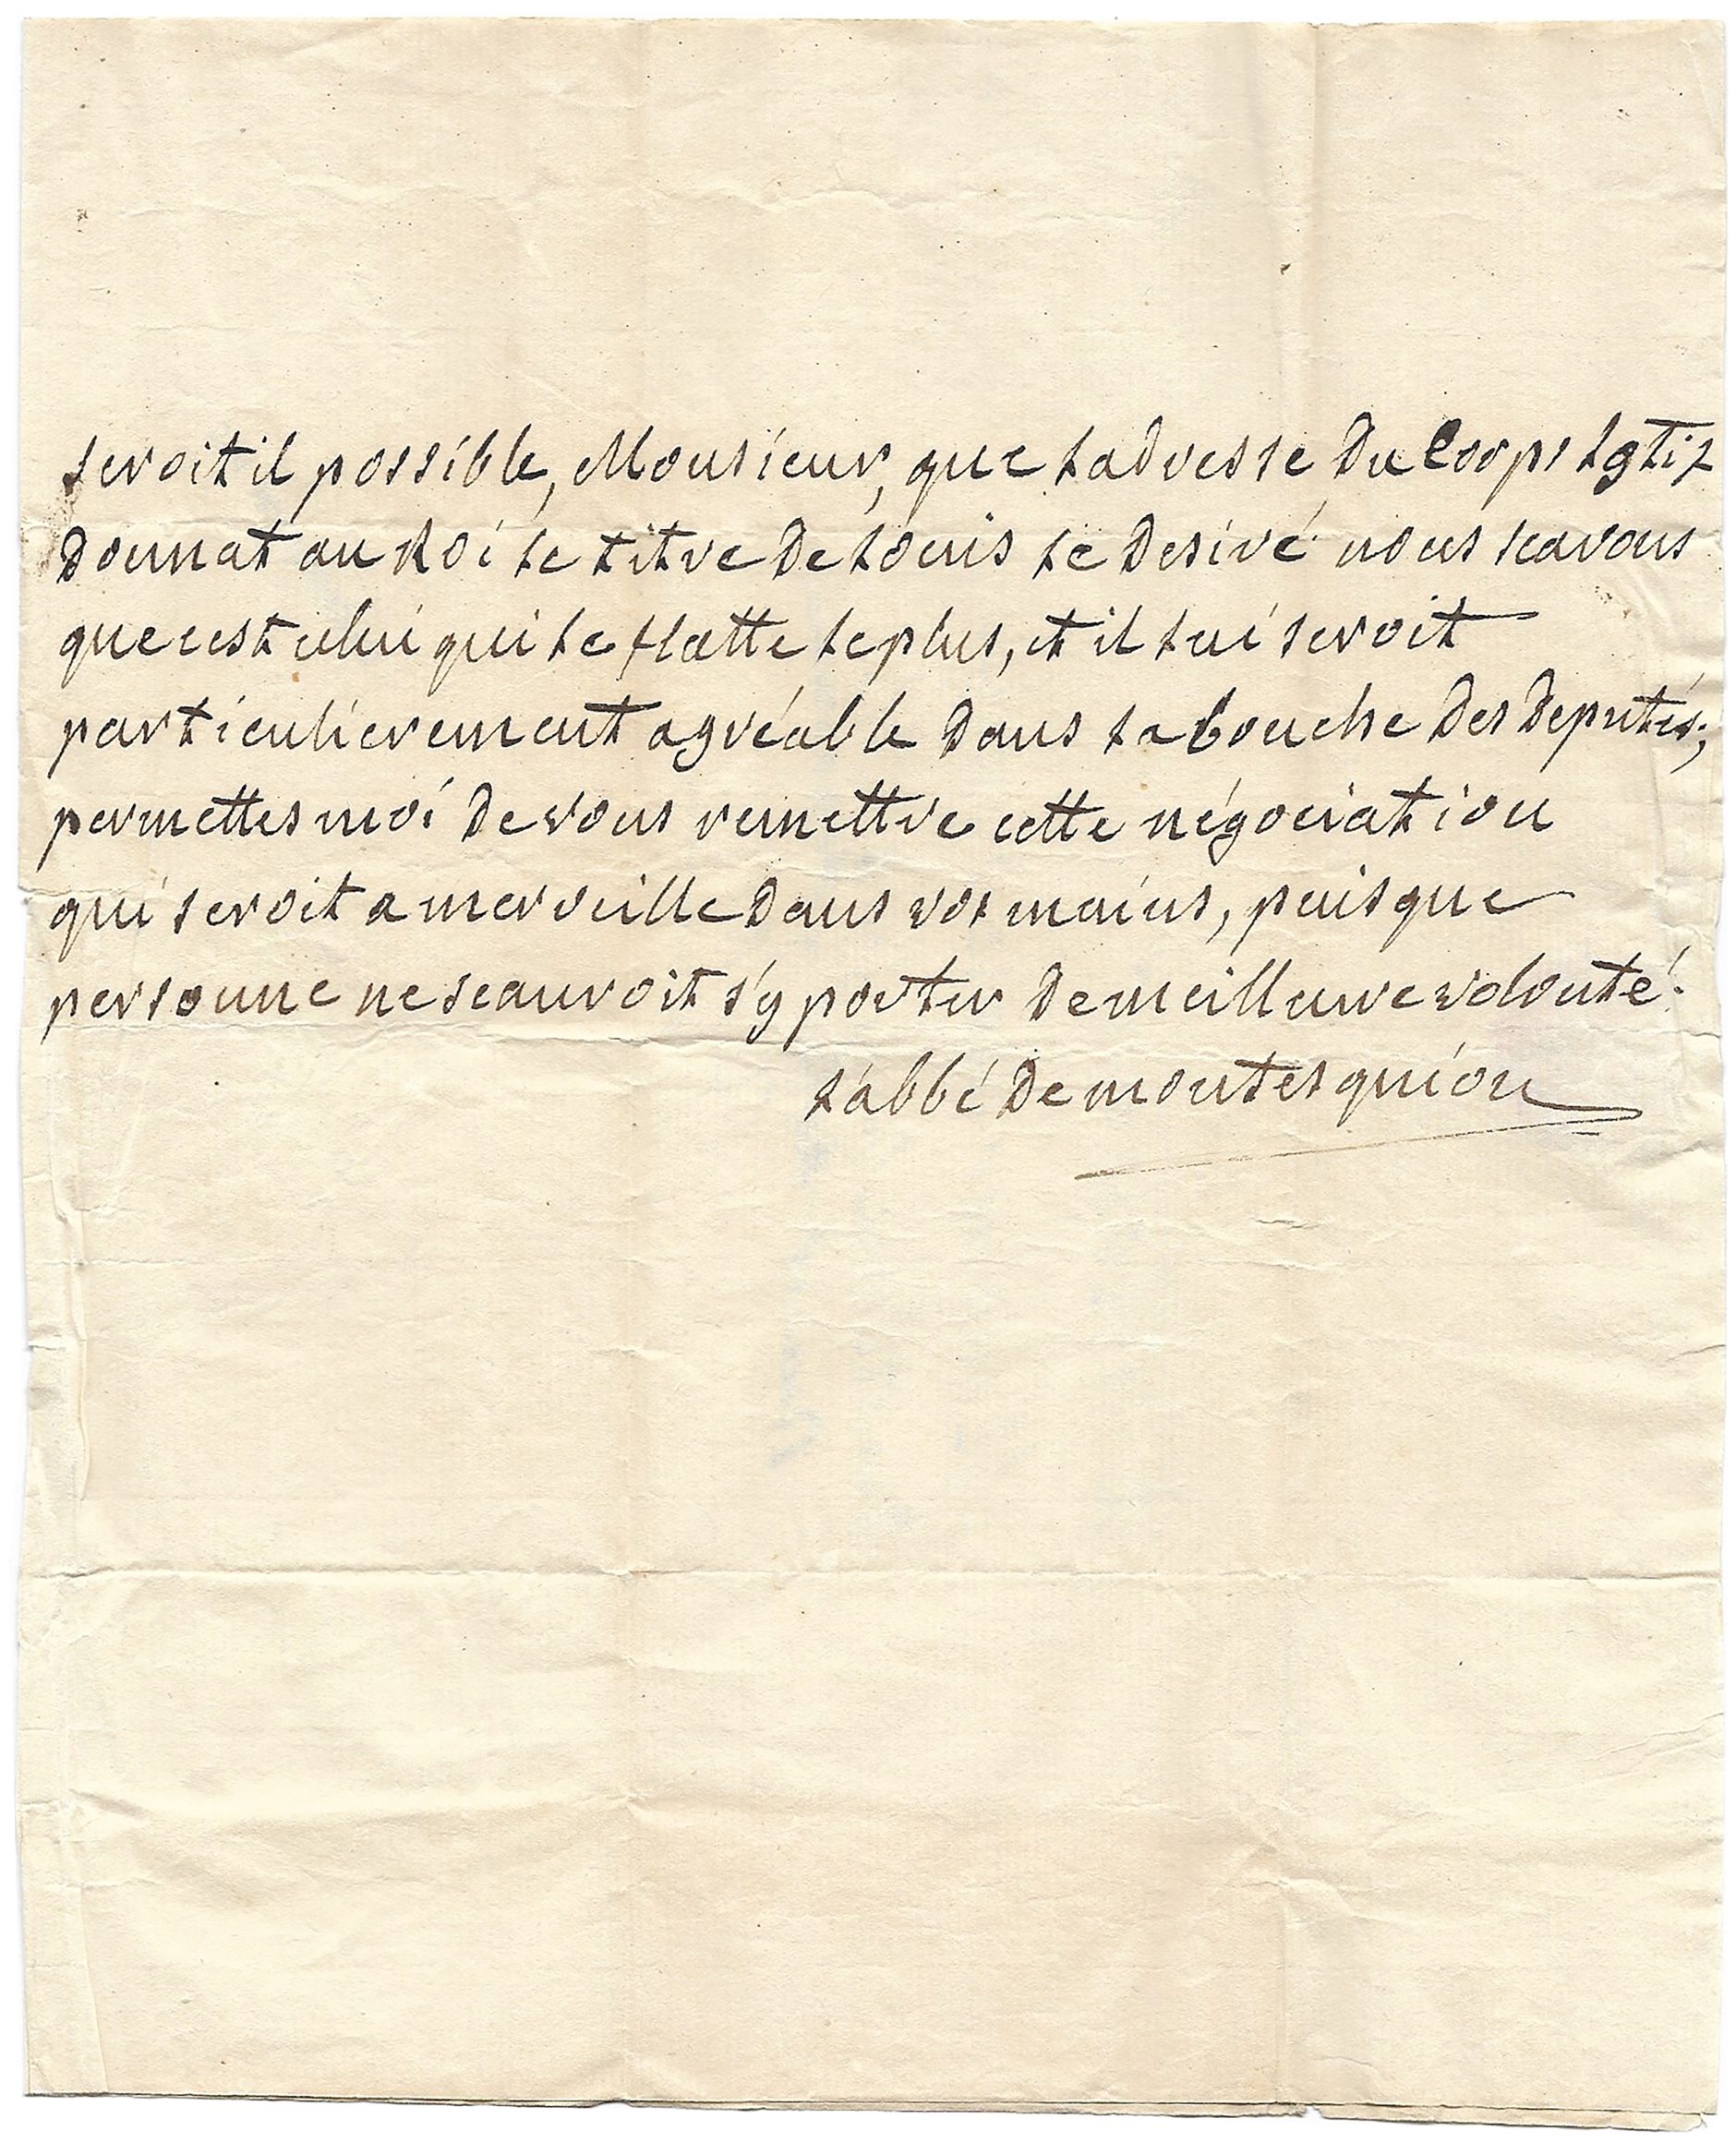 seroit il possible, Monsieur, que l'adresse du Corps lgtif
donnat au Roi le titre de Louis le desiré nous scavons
que cest celui qui le flatte le plus, et il lui seroit
particulierement agréable dans la bouche des deputés;
permettes moi de vous remettre cette négociation
qui seroit a merveille dans vos mains, puisque
personne ne scauroit s'y porter de meilleure volonté.
l'abbé de montesquiou